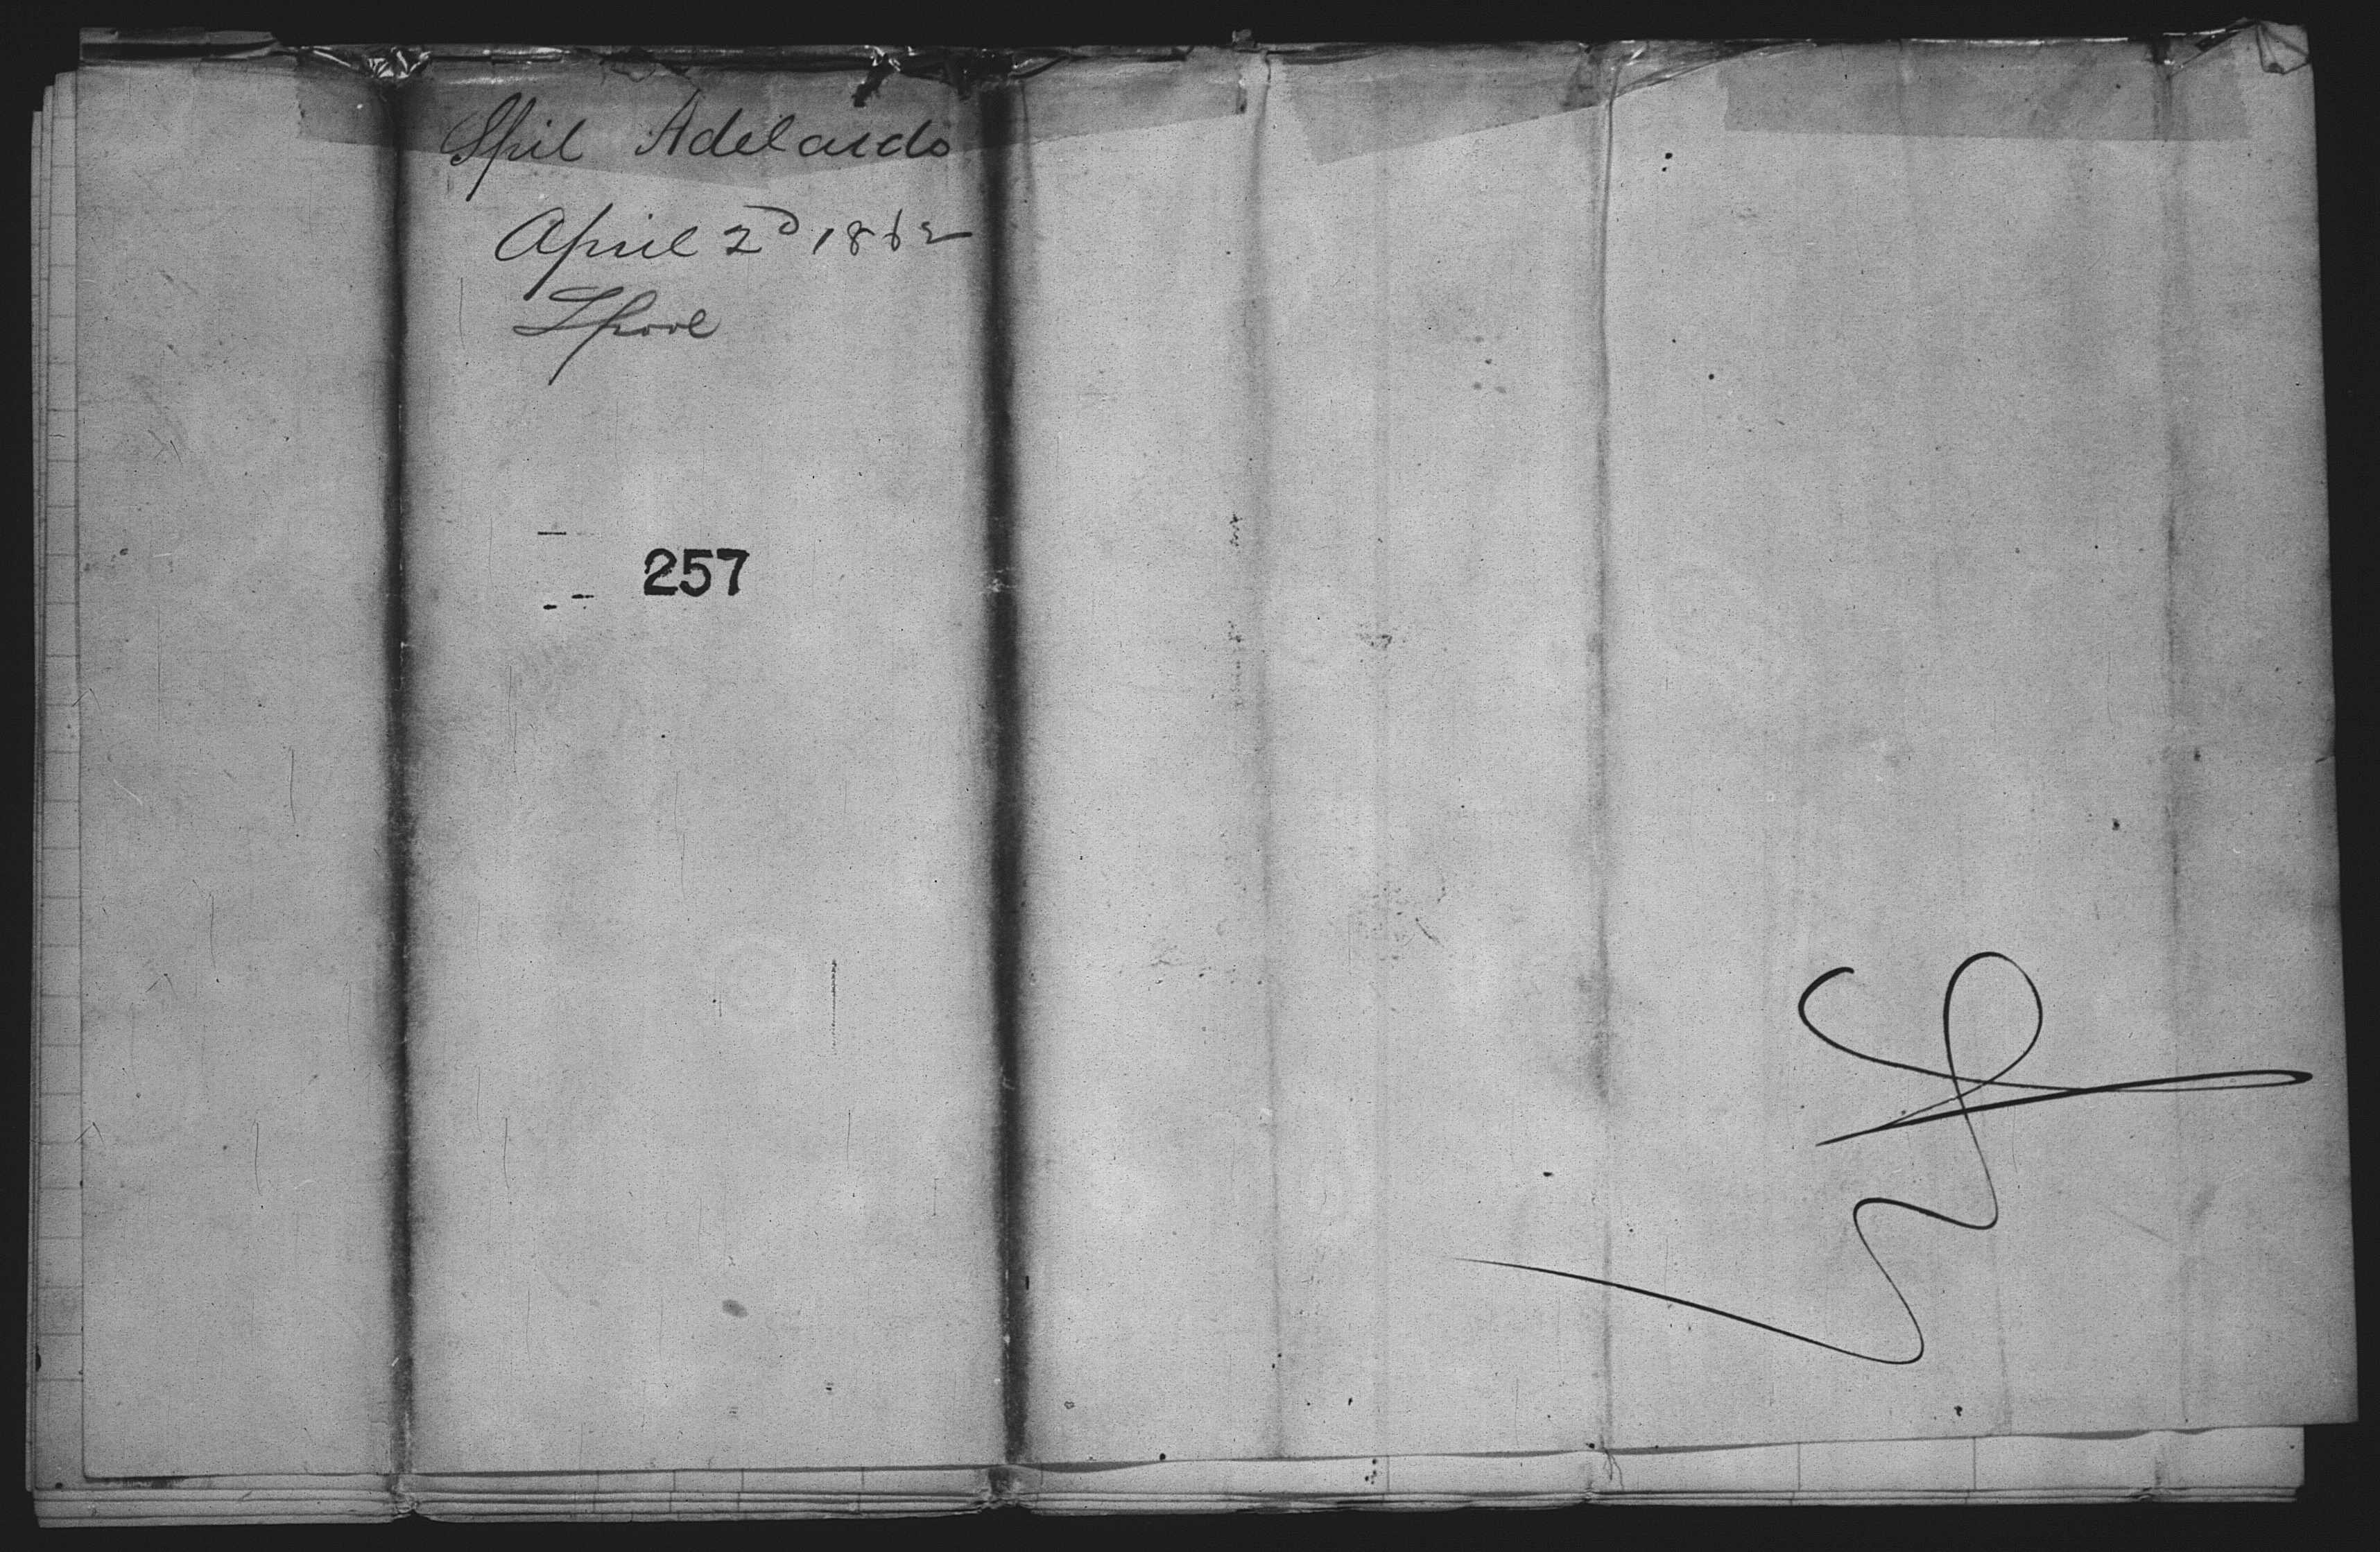 Shil Adelaido
April 2D 1862
Lpool
257